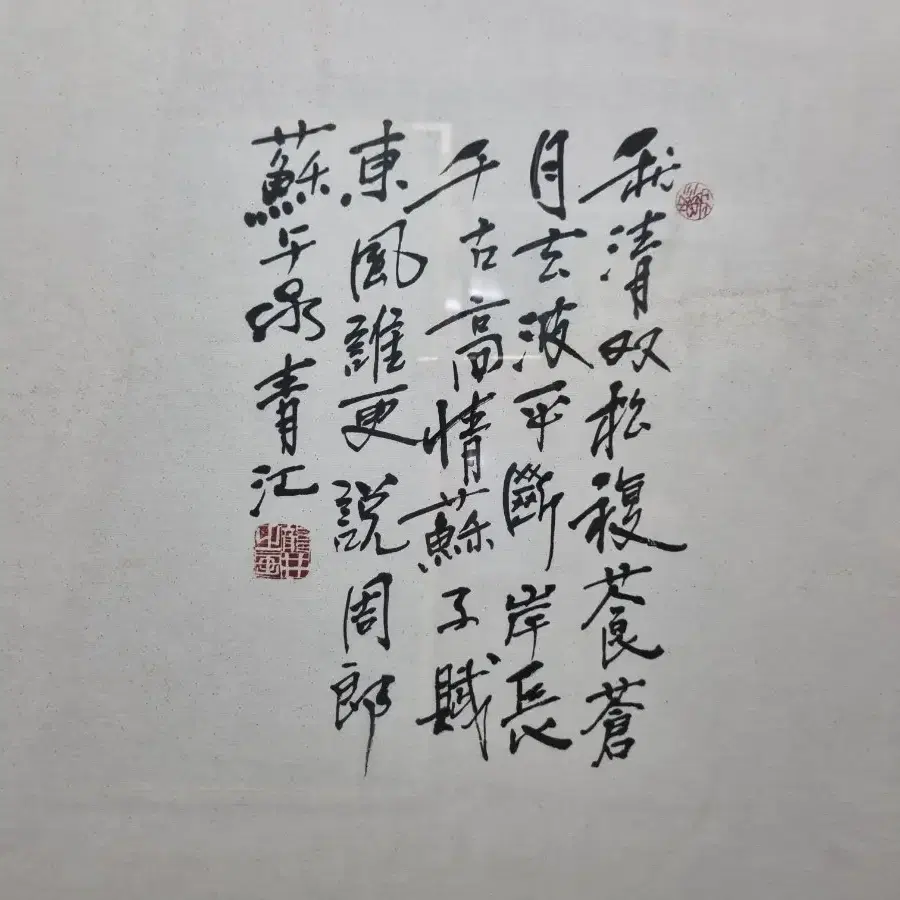 秋清双松複蒼蒼
月玄波平斷岸長
千古高情蘇子賦
東風誰更説周郎
蘇青江